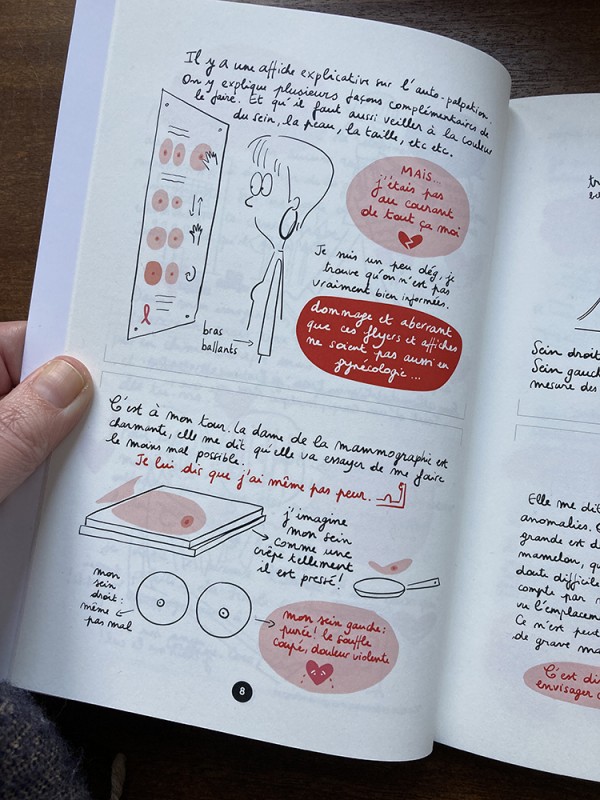 Il y a une affiche explicative sur l'auto-palpation.
On y explique plusieurs façons complémentaires de
le faire. Et qu'il faut aussi veiller à la couleur
du sein, la peau, la taille, etc etc.
MAIS...
j'étais pas
au courant
de tout ça moi
Je suis un peu dég, je
trouve qu'on n'est pas
vraiment bien informées.
dommage et aberrant
que ces flyers et affiches
ne soient pas aussi en
gynécologie...
bras
ballants
C'est à mon tour. La dame de la mammographie est
charmante, elle me dit qu'elle va essayer de me faire
le moins mal possible.
Je lui dis que j'ai même pas peur.
j'imagine
mon sein
comme une
crêpe tellement
il est pressé!
mon
sein
droit:
même
pas mal
mon sein gauche:
purée! le souffle
coupé, douleur violente
8
Sein droit
Sein gauch
mesure des
Elle me dit
anomalies.
grande est d
mamelon, qu
doute difficile
compte par
vu l'emplacem
Ce n'est peut
de grave ma
C'est di
envisager